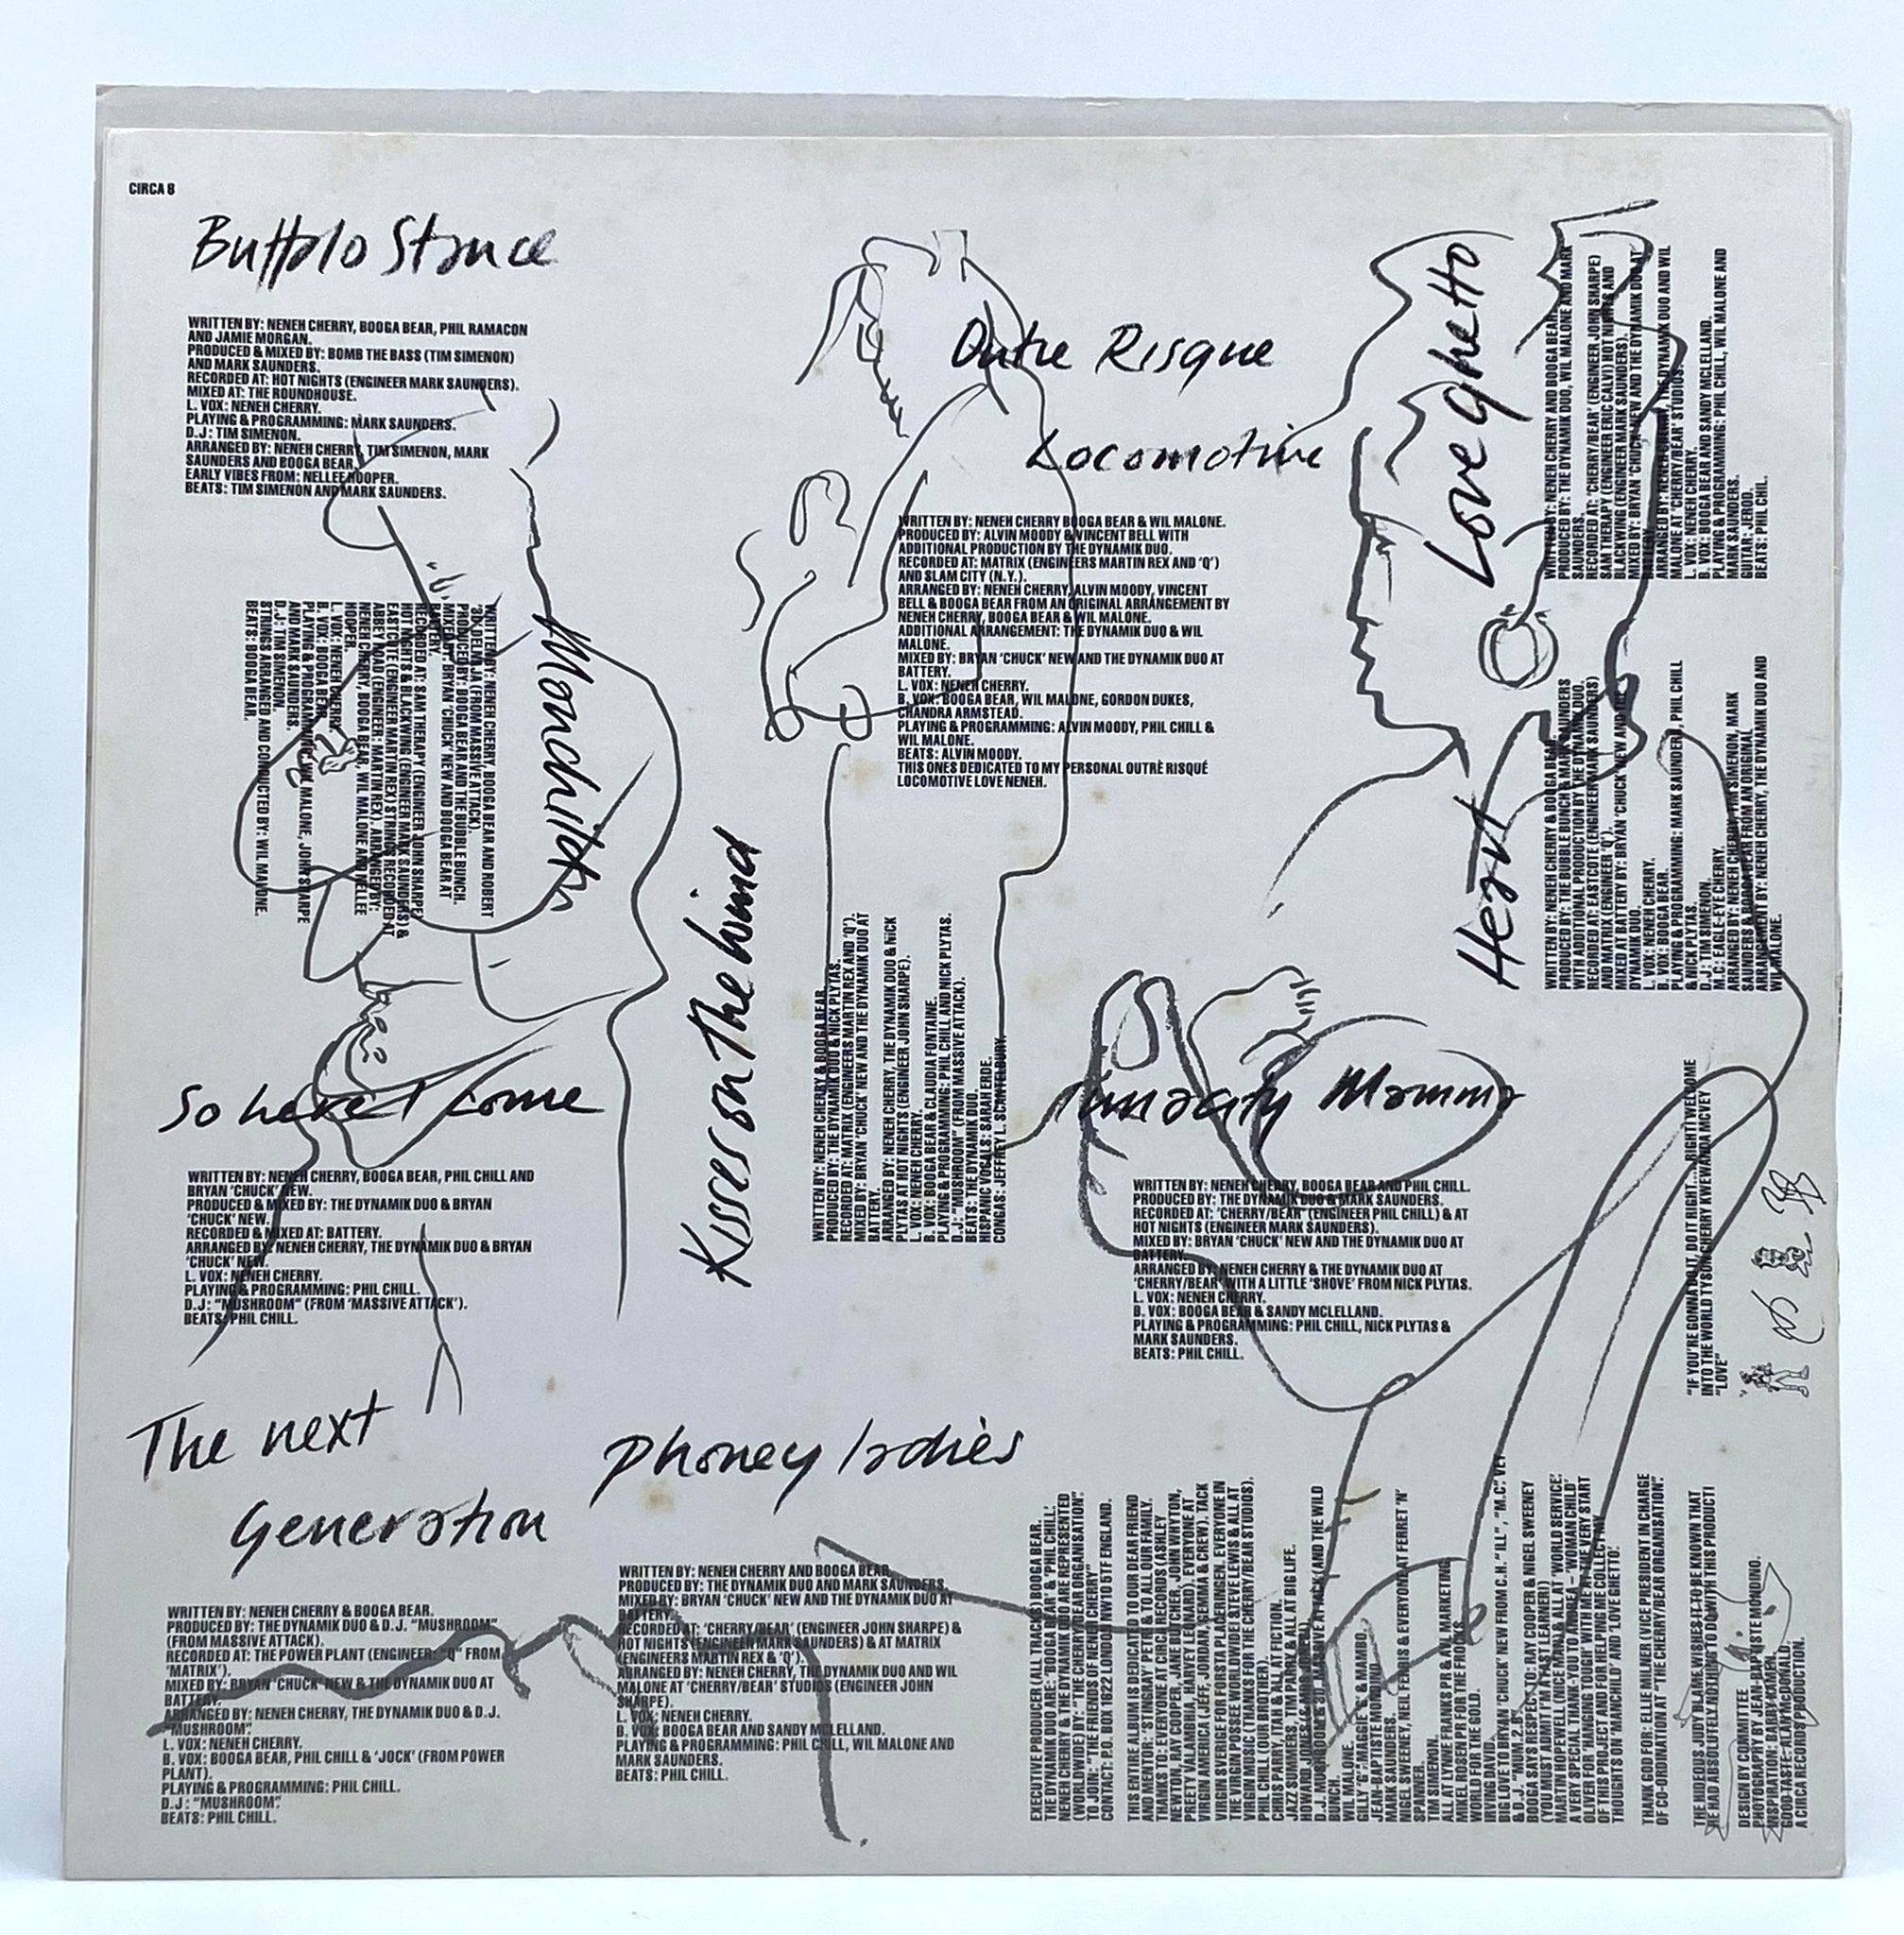 CIRCA 8
Buffalo Stance
WRITTEN BY: NENEH CHERRY, BOOGA BEAR, PHIL RAMACON
AND JAMIE MORGAN.
PRODUCED & MIXED BY: BOMB THE BASS (TIM SIMENON)
AND MARK SAUNDERS.
RECORDED AT: HOT NIGHTS (ENGINEER MARK SAUNDERS).
MIXED AT: THE ROUNDHOUSE.
L. VOX: NENEH CHERRY.
PLAYING & PROGRAMMING: MARK SAUNDERS.
D.J: TIM SIMENON.
ARRANGED BY: NENEH CHERRY, TIM SIMENON, MARK
SAUNDERS AND BOOGA BEAR.
EARLY VIBES FROM: NELLEE HOOPER.
BEATS: TIM SIMENON AND MARK SAUNDERS.
Manchild
WRITTEN BY: NENEH CHERRY, BOOGA BEAR AND ROBERT
'3D' DEL NAJA (FROM MASSIVE ATTACK).
PRODUCED BY: BOOGA BEAR AND THE BUBBLE BUNCH.
MIXED BY: BRYAN 'CHUCK' NEW AND BOOGA BEAR AT
BATTERY.
RECORDED AT: SAM THERAPY (ENGINEER JOHN SHARPE)
HOT NIGHTS & BLACKWING (ENGINEER MARK SAUNDERS) &
EASTCOTE (ENGINEER MARTIN REX) STRINGS RECORDED AT
ABBEY ROAD (ENGINEER: MARTIN REX), ARRANGED BY:
NENEH CHERRY, BOOGA BEAR, WIL MALONE AND NELLEE
HOOPER.
L. VOX: NENEH CHERRY.
B. VOX: BOOGA BEAR.
PLAYING & PROGRAMMING: WIL MALONE, JOHN SHARPE
AND MARK SAUNDERS.
D.J: TIM SIMENON.
STRINGS ARRANGED AND CONDUCTED BY: WIL MALONE.
BEATS: BOOGA BEAR.
Outre Risque
Locomotive
WRITTEN BY: NENEH CHERRY BOOGA BEAR & WIL MALONE.
PRODUCED BY: ALVIN MOODY & VINCENT BELL WITH
ADDITIONAL PRODUCTION BY THE DYNAMIK DUO.
RECORDED AT: MATRIX (ENGINEERS MARTIN REX AND 'Q')
AND SLAM CITY (N.Y.).
ARRANGED BY: NENEH CHERRY, ALVIN MOODY, VINCENT
BELL & BOOGA BEAR FROM AN ORIGINAL ARRANGEMENT BY
NENEH CHERRY, BOOGA BEAR & WIL MALONE.
ADDITIONAL ARRANGEMENT: THE DYNAMIK DUO & WIL
MALONE.
MIXED BY: BRYAN 'CHUCK' NEW AND THE DYNAMIK DUO AT
BATTERY.
L. VOX: NENEH CHERRY.
B. VOX: BOOGA BEAR, WIL MALONE, GORDON DUKES,
CHANDRA ARMSTEAD.
PLAYING & PROGRAMMING: ALVIN MOODY, PHIL CHILL &
WIL MALONE.
BEATS: ALVIN MOODY.
THIS ONES DEDICATED TO MY PERSONAL OUTRÈ RISQUÉ
LOCOMOTIVE LOVE NENEH.
Love ghetto
WRITTEN BY: NENEH CHERRY AND BOOGA BEAR.
PRODUCED BY: THE DYNAMIK DUO, WIL MALONE AND MARK
SAUNDERS.
RECORDED AT: 'CHERRY/BEAR' (ENGINEER JOHN SHARPE)
SAM THERAPY (ENGINEER ERIC CALVI) HOT NIGHTS AND
BLACKWING (ENGINEER MARK SAUNDERS).
MIXED BY: BRYAN 'CHUCK' NEW AND THE DYNAMIK DUO AT
BATTERY.
ARRANGED BY: NENEH CHERRY, THE DYNAMIK DUO AND WIL
MALONE AT 'CHERRY/BEAR' STUDIOS.
L. VOX: NENEH CHERRY.
B. VOX: BOOGA BEAR AND SANDY MCLELLAND.
PLAYING & PROGRAMMING: PHIL CHILL, WIL MALONE AND
MARK SAUNDERS.
GUITAR: JEROD.
BEATS: PHIL CHIL.
Heart
WRITTEN BY: NENEH CHERRY & BOOGA BEAR.
PRODUCED BY: THE BUBBLE BUNCH & MARK SAUNDERS
WITH ADDITIONAL PRODUCTION BY THE DYNAMIK DUO.
RECORDED AT: EASTCOTE (ENGINEER MARK SAUNDERS)
AND MATRIX (ENGINEER 'Q').
MIXED AT BATTERY BY: BRYAN 'CHUCK' NEW AND THE
DYNAMIK DUO.
L. VOX: NENEH CHERRY.
B. VOX: BOOGA BEAR.
PLAYING & PROGRAMMING: MARK SAUNDERS, PHIL CHILL
& NICK PLYTAS.
D.J: TIM SIMENON.
M.C: EAGLE-EYE CHERRY.
ARRANGED BY: NENEH CHERRY, TIM SIMENON, MARK
SAUNDERS & BOOGA BEAR FROM AN ORIGINAL
ARRANGEMENT BY: NENEH CHERRY, THE DYNAMIK DUO AND
WIL MALONE.
Kisses on The wind
WRITTEN BY: NENEH CHERRY & BOOGA BEAR.
PRODUCED BY: THE DYNAMIK DUO & NICK PLYTAS.
RECORDED AT: MATRIX (ENGINEERS MARTIN REX AND 'Q').
MIXED BY: BRYAN 'CHUCK' NEW AND THE DYNAMIK DUO AT
BATTERY.
ARRANGED BY: NENEH CHERRY, THE DYNAMIK DUO & NICK
PLYTAS AT HOT NIGHTS (ENGINEER JOHN SHARPE).
L. VOX: NENEH CHERRY.
B. VOX: BOOGA BEAR & CLAUDIA FONTAINE.
PLAYING & PROGRAMMING: PHIL CHILL AND NICK PLYTAS.
D.J: "MUSHROOM" (FROM MASSIVE ATTACK).
BEATS: THE DYNAMIK DUO.
HISPANIC VOCALS: SARAH ERDE.
CONGAS: JEFFREY L.
So here I come
WRITTEN BY: NENEH CHERRY, BOOGA BEAR, PHIL CHILL AND
BRYAN 'CHUCK' NEW.
PRODUCED & MIXED BY: THE DYNAMIK DUO & BRYAN
'CHUCK' NEW.
RECORDED & MIXED AT: BATTERY.
ARRANGED BY: NENEH CHERRY, THE DYNAMIK DUO & BRYAN
'CHUCK' NEW.
L. VOX: NENEH CHERRY.
PLAYING & PROGRAMMING: PHIL CHILL.
D.J: "MUSHROOM" (FROM 'MASSIVE ATTACK').
BEATS: PHIL CHILL.
Inna city Mamma
WRITTEN BY: NENEH CHERRY, BOOGA BEAR AND PHIL CHILL.
PRODUCED BY: THE DYNAMIK DUO & MARK SAUNDERS.
RECORDED AT: 'CHERRY/BEAR' (ENGINEER PHIL CHILL) & AT
HOT NIGHTS (ENGINEER MARK SAUNDERS).
MIXED BY: BRYAN 'CHUCK' NEW AND THE DYNAMIK DUO AT
BATTERY.
ARRANGED BY: NENEH CHERRY & THE DYNAMIK DUO AT
'CHERRY/BEAR' WITH A LITTLE 'SHOVE' FROM NICK PLYTAS.
L. VOX: NENEH CHERRY.
B. VOX: BOOGA BEAR & SANDY MCLELLAND.
PLAYING & PROGRAMMING: PHIL CHILL, NICK PLYTAS &
MARK SAUNDERS.
BEATS: PHIL CHILL.
"IF YOU'RE GONNA DO IT, DO IT RIGHT... RIGHT! WELCOME
INTO THE WORLD TYSON CHERRY KWEWANDA MCVEY
"LOVE"
The next
Generation
WRITTEN BY: NENEH CHERRY & BOOGA BEAR.
PRODUCED BY: THE DYNAMIK DUO & D.J. "MUSHROOM"
(FROM MASSIVE ATTACK).
RECORDED AT: THE POWER PLANT (ENGINEER: "Q" FROM
'MATRIX').
MIXED BY: BRYAN 'CHUCK' NEW & THE DYNAMIK DUO AT
BATTERY.
ARRANGED BY: NENEH CHERRY, THE DYNAMIK DUO & D.J.
"MUSHROOM".
L. VOX: NENEH CHERRY.
B. VOX: BOOGA BEAR, PHIL CHILL & 'JOCK' (FROM POWER
PLANT).
PLAYING & PROGRAMMING: PHIL CHILL.
D.J: "MUSHROOM".
BEATS: PHIL CHILL.
Phoney ladies
WRITTEN BY: NENEH CHERRY AND BOOGA BEAR.
PRODUCED BY: THE DYNAMIK DUO AND MARK SAUNDERS.
MIXED BY: BRYAN 'CHUCK' NEW AND THE DYNAMIK DUO AT
BATTERY.
RECORDED AT: 'CHERRY/BEAR' (ENGINEER JOHN SHARPE) &
HOT NIGHTS (ENGINEER MARK SAUNDERS) & AT MATRIX
(ENGINEERS MARTIN REX & 'Q').
ARRANGED BY: NENEH CHERRY, THE DYNAMIK DUO AND WIL
MALONE AT 'CHERRY/BEAR' STUDIOS (ENGINEER JOHN
SHARPE).
L. VOX: NENEH CHERRY.
B. VOX: BOOGA BEAR AND SANDY MCLELLAND.
PLAYING & PROGRAMMING: PHIL CHILL, WIL MALONE AND
MARK SAUNDERS.
BEATS: PHIL CHILL.
EXECUTIVE PRODUCER (ALL TRACKS) BOOGA BEAR.
THE DYNAMIK DUO ARE: 'BOOGA BEAR' & 'PHIL CHILL'.
NENEH CHERRY & THE DYNAMIK DUO ARE REPRESENTED
(WORLDWIDE) BY: "THE CHERRY/BEAR ORGANISATION".
TO JOIN: "THE FRIENDS OF NENEH CHERRY"
CONTACT: P.O. BOX 1622 LONDON NW10 5TF ENGLAND.
THIS ENTIRE ALBUM IS DEDICATED TO OUR DEAR FRIEND
AND MENTOR: 'STINGRAY' PETE & TO ALL OUR FAMILY.
THANKS TO: EVERYONE AT CIRCA RECORDS (ASHLEY
NEWTON, RAY COOPER, JANE BUTCHER, JOHN WHYTON,
PREETY VALANGHIA, HARVEY LEONARD), EVERYONE AT
VIRGIN AMERICA (JEFF, JORDAN, GEMMA & CREW). TACK
VIRGIN SVERIGE FOR FORSTA PLACERINGEN. EVERYONE IN
THE VIRGIN POSSEE WORLDWIDE & STEVE LEWIS & ALL AT
VIRGIN MUSIC (THANKS FOR THE CHERRY/BEAR STUDIOS).
PHIL CHILL (OUR BROTHER).
CHRIS PARRY, ITA & ALL AT FICTION.
JAZZ SUMMERS, TIM PARRY & ALL AT BIG LIFE.
HOWARD JONES
D.J. MUSHROOM & 3D (MASSIVE ATTACK) (AND THE WILD
BUNCH.
WIL MALONE.
GILLY 'G', MAGGIE 'G' & MAMBO.
JEAN-BAPTISTE MONDINO
MARK SAUNDERS.
NIGEL SWEENEY, NEIL FERRIS & EVERYONE AT FERRET 'N'
SPANNER.
TIM SIMENON.
ALL AT LYNNE FRANKS PR & AVL MARKETING
MIKEL ROSEN PR FOR THE FROCKS.
WORLD FOR THE GOLD.
IRVING DAVID.
BIG LOVE TO BRYAN 'CHUCK' NEW FROM C.H. "ILL", "M.C." VEY
& D.J. "MUM, 2 B"
BOOGA SAYS RESPECT TO: RAY COOPER & NIGEL SWEENEY
(YOU MUST ADMIT I'M A FAST LEARNER!)
MARTIN HOPEWELL (NICE MAN) & ALL AT 'WORLD SERVICE'.
A VERY SPECIAL THANK-YOU TO ANDREA – 'WOMAN CHILD'
OLIVER FOR 'HANGING TOUGH' WITH ME AT THE VERY START
OF THIS PROJECT AND FOR HELPING ME COLLECT MY
THOUGHTS ON 'MANCHILD' AND 'LOVE GHETTO'.
THANK GOD FOR: ELLIE MILNER (VICE PRESIDENT IN CHARGE
OF CO-ORDINATION AT "THE CHERRY/BEAR ORGANISATION".
THE HIDEOUS JUDY BLAME WISHES IT TO BE KNOWN THAT
HE HAD ABSOLUTELY NOTHING TO DO WITH THIS PRODUCTI
DESIGN BY COMMITTEE
PHOTOGRAPHY BY JEAN-BAPTISTE MONDINO.
INSPIRATION: BABBY KAMEN.
GOOD TASTE: ALAN McDONALD.
A CIRCA RECORDS PRODUCTION.